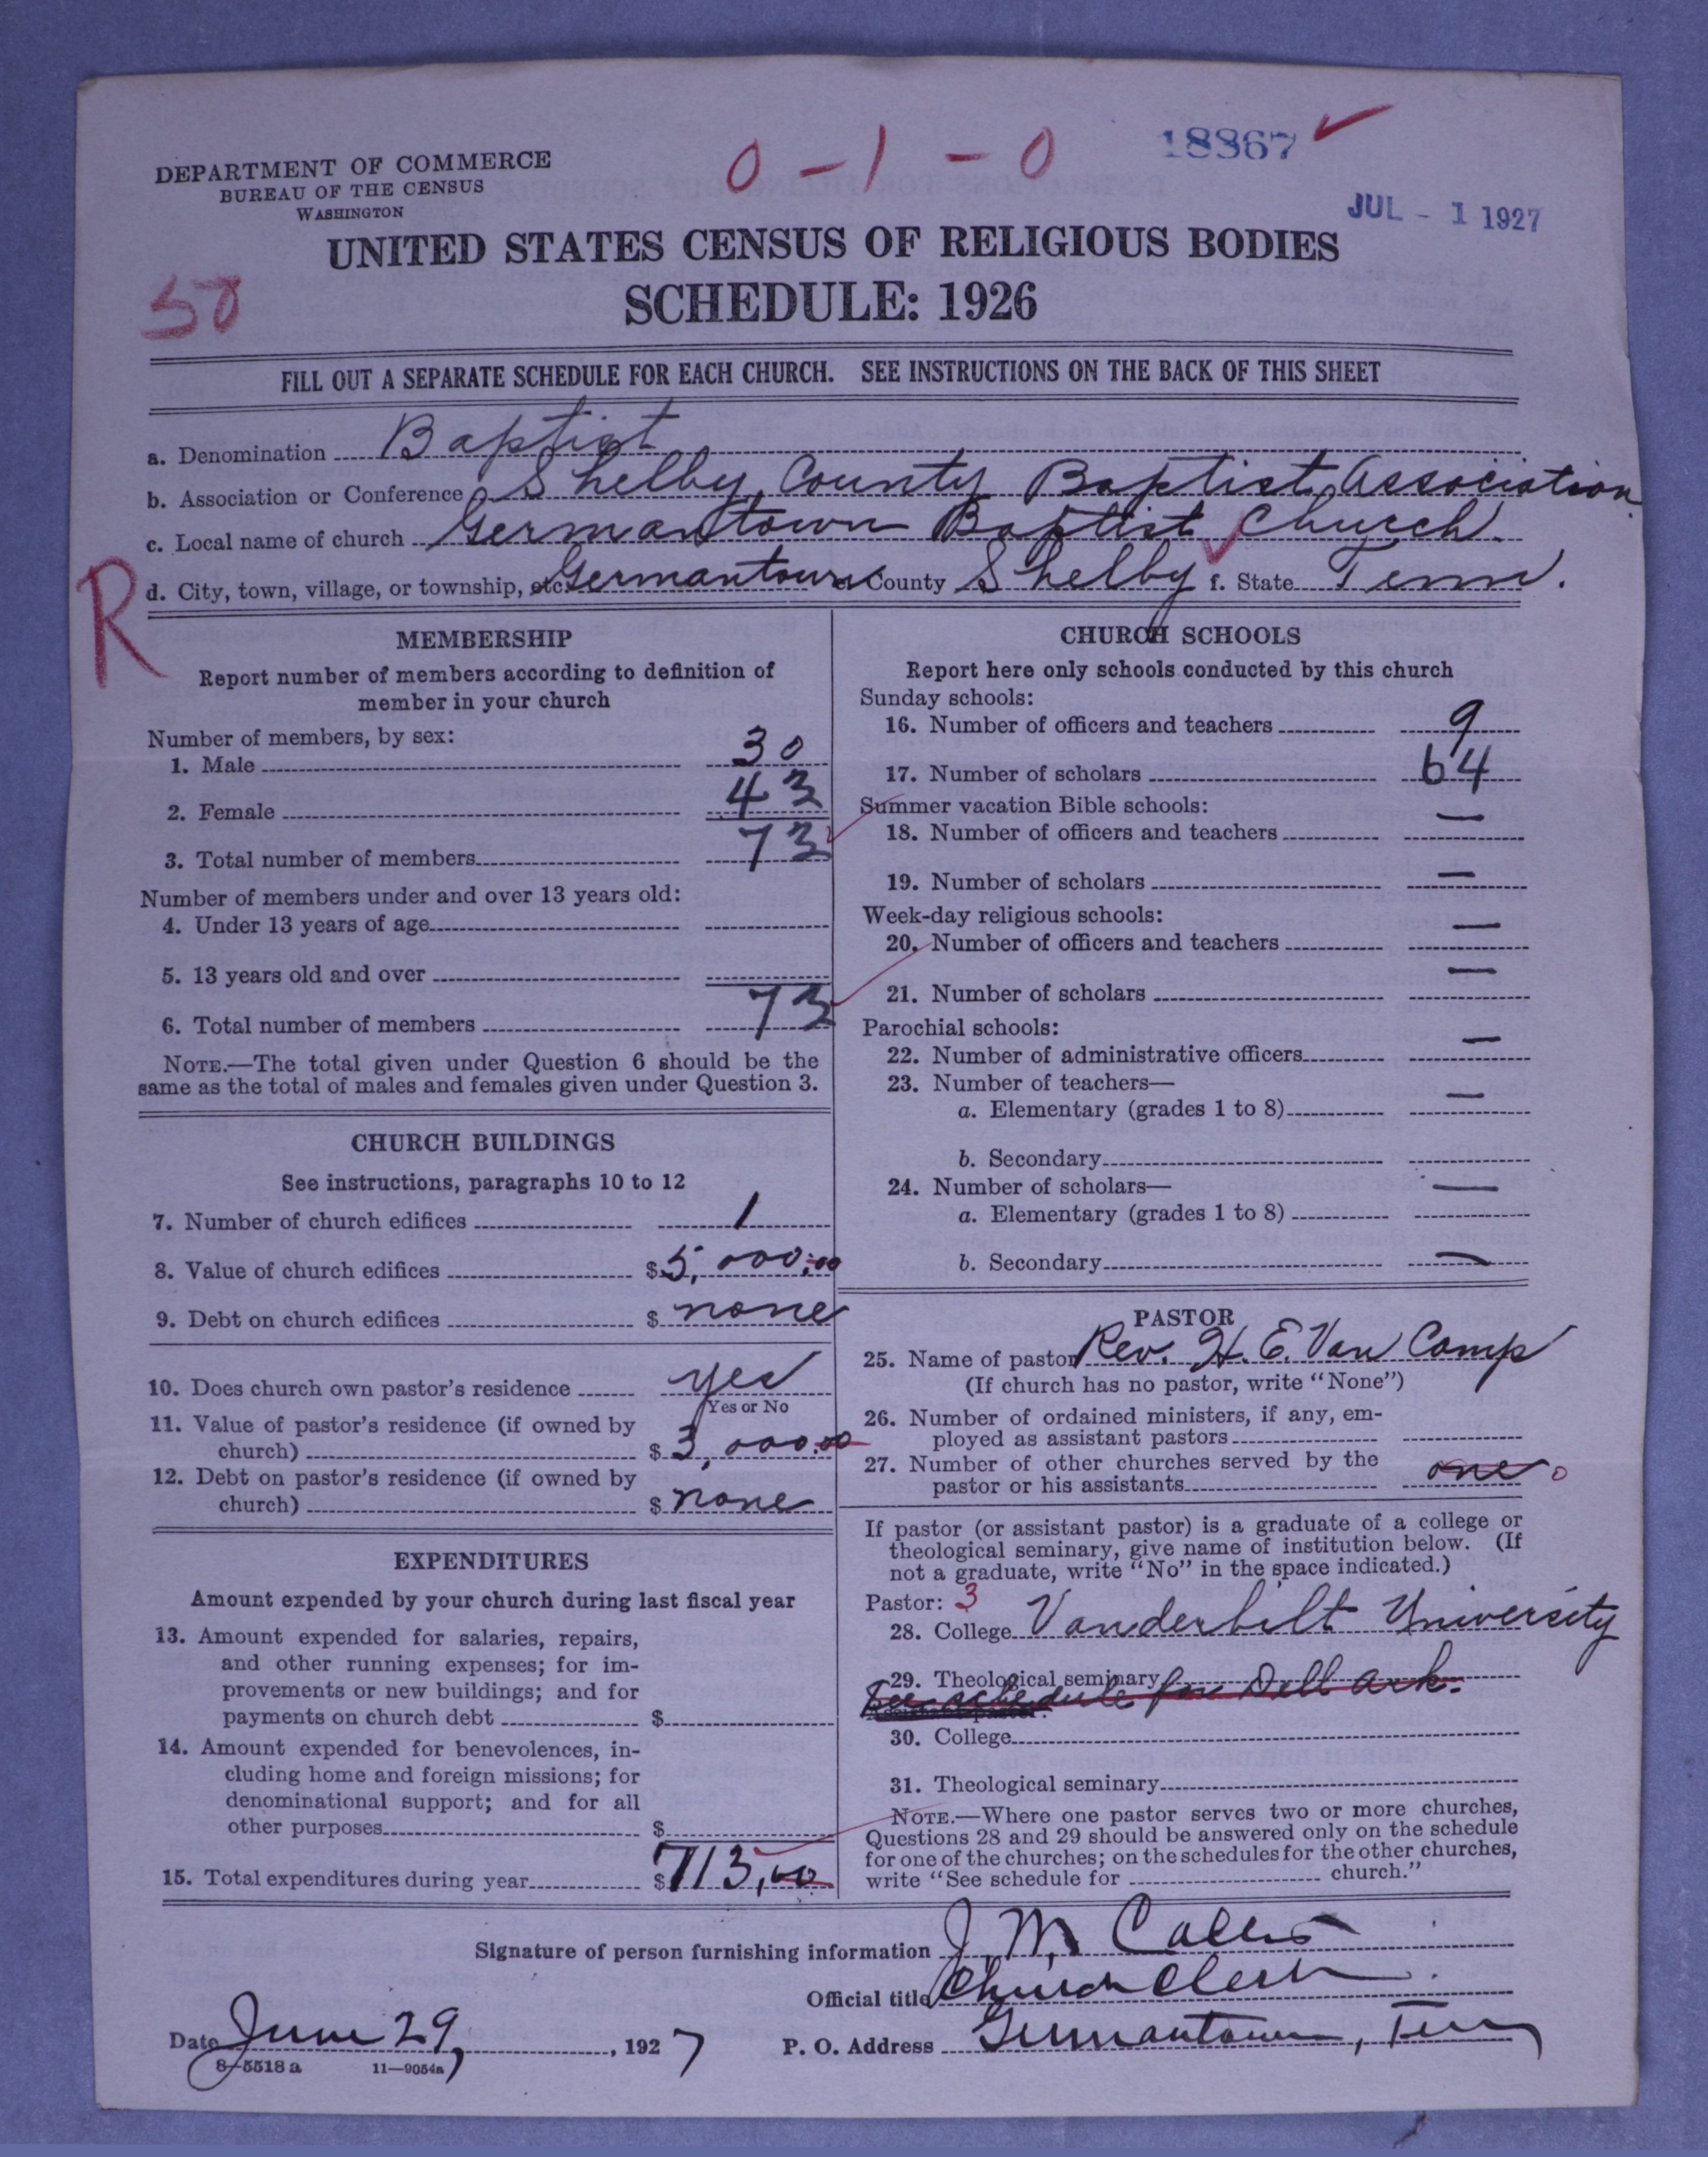 0 - 1 - 0
18367
DEPARTMENT OF COMMERCE
BUREAU OF THE CENSUS
WASHINGTON
JUL - 1 1927
UNITED STATES CENSUS OF RELIGIOUS BODIES
50
SCHEDULE: 1926
FILL OUT A SEPARATE SCHEDULE FOR EACH CHURCH. SEE INSTRUCTIONS ON THE BACK OF THIS SHEET
a. Denomination Baptist
b. Association or Conference Shelby County Baptist Association
c. Local name of church Germantown Baptist Church.
R
d. City, town, village, or township, etc. Germantown e. County Shelby f. State Tenn.
MEMBERSHIP
Report number of members according to definition of
member in your church
Number of members, by sex:
1. Male 30
2. Female 43
3. Total number of members 73
Number of members under and over 13 years old:
4. Under 13 years of age
5. 13 years old and over
6. Total number of members 73
NOTE.—The total given under Question 6 should be the
same as the total of males and females given under Question 3.
CHURCH BUILDINGS
See instructions, paragraphs 10 to 12
7. Number of church edifices 1
8. Value of church edifices $5,000.00
9. Debt on church edifices $ none
10. Does church own pastor's residence yes
Yes or No
11. Value of pastor's residence (if owned by
church) $3,000.00
12. Debt on pastor's residence (if owned by
church) $ none
EXPENDITURES
Amount expended by your church during last fiscal year
13. Amount expended for salaries, repairs,
and other running expenses; for im-
provements or new buildings; and for
payments on church debt $
14. Amount expended for benevolences, in-
cluding home and foreign missions; for
denominational support; and for all
other purposes $
15. Total expenditures during year $713.00
CHURCH SCHOOLS
Report here only schools conducted by this church
Sunday schools:
16. Number of officers and teachers 9
17. Number of scholars 64
Summer vacation Bible schools:
18. Number of officers and teachers —
19. Number of scholars —
Week-day religious schools:
20. Number of officers and teachers —
21. Number of scholars —
Parochial schools:
22. Number of administrative officers —
23. Number of teachers—
a. Elementary (grades 1 to 8) —
b. Secondary
24. Number of scholars— —
a. Elementary (grades 1 to 8)
b. Secondary —
PASTOR
25. Name of pastor Rev. H. E. Van Camp
(If church has no pastor, write "None")
26. Number of ordained ministers, if any, em-
ployed as assistant pastors
27. Number of other churches served by the
pastor or his assistants one 0
If pastor (or assistant pastor) is a graduate of a college or
theological seminary, give name of institution below. (If
not a graduate, write "No" in the space indicated.)
Pastor: 3
28. College Vanderbilt University
29. Theological seminary
See schedule for Dell Ark.
30. College
31. Theological seminary
NOTE.—Where one pastor serves two or more churches,
Questions 28 and 29 should be answered only on the schedule
for one of the churches; on the schedules for the other churches,
write "See schedule for church."
Signature of person furnishing information J. M.
Official title Church Clerk.
Date June 29, 1927 P. O. Address Germantown, Tenn
8-5518 a 11—9054a